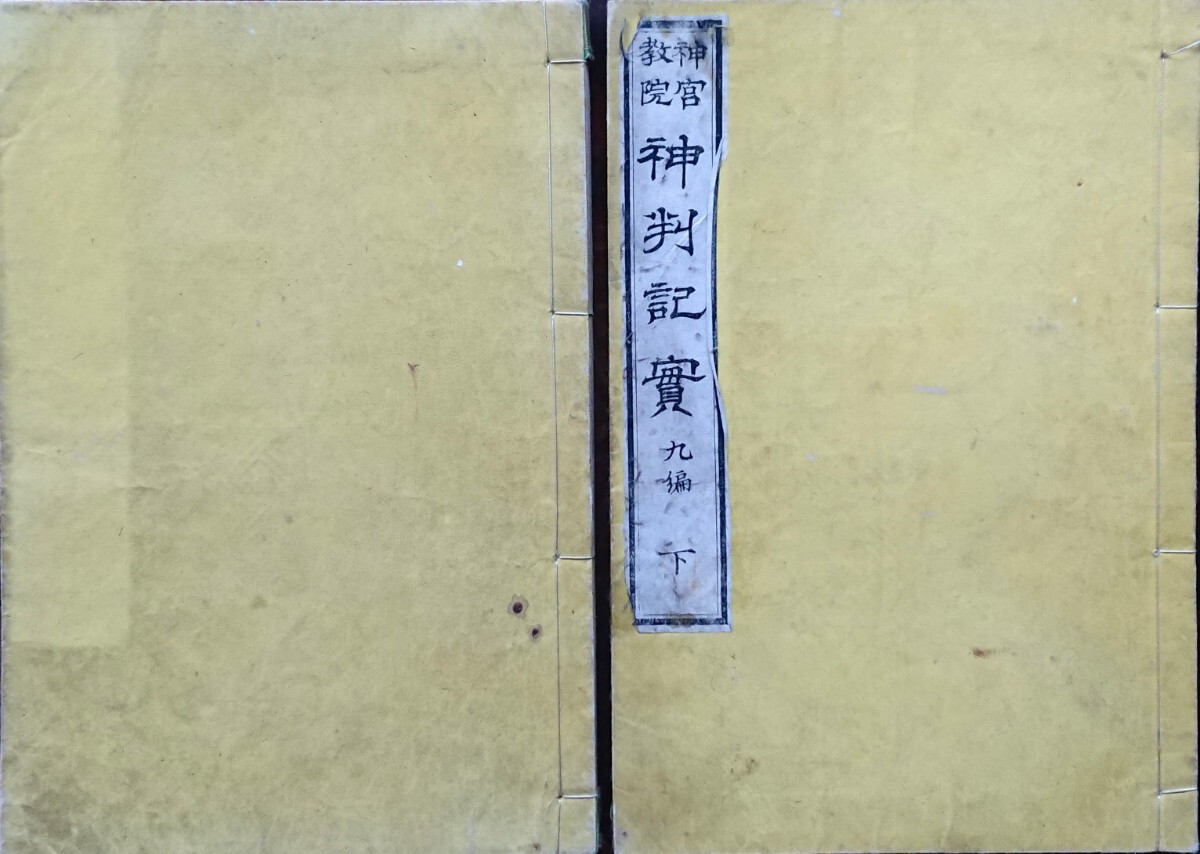 神宮
教院
神判記實 九編 下